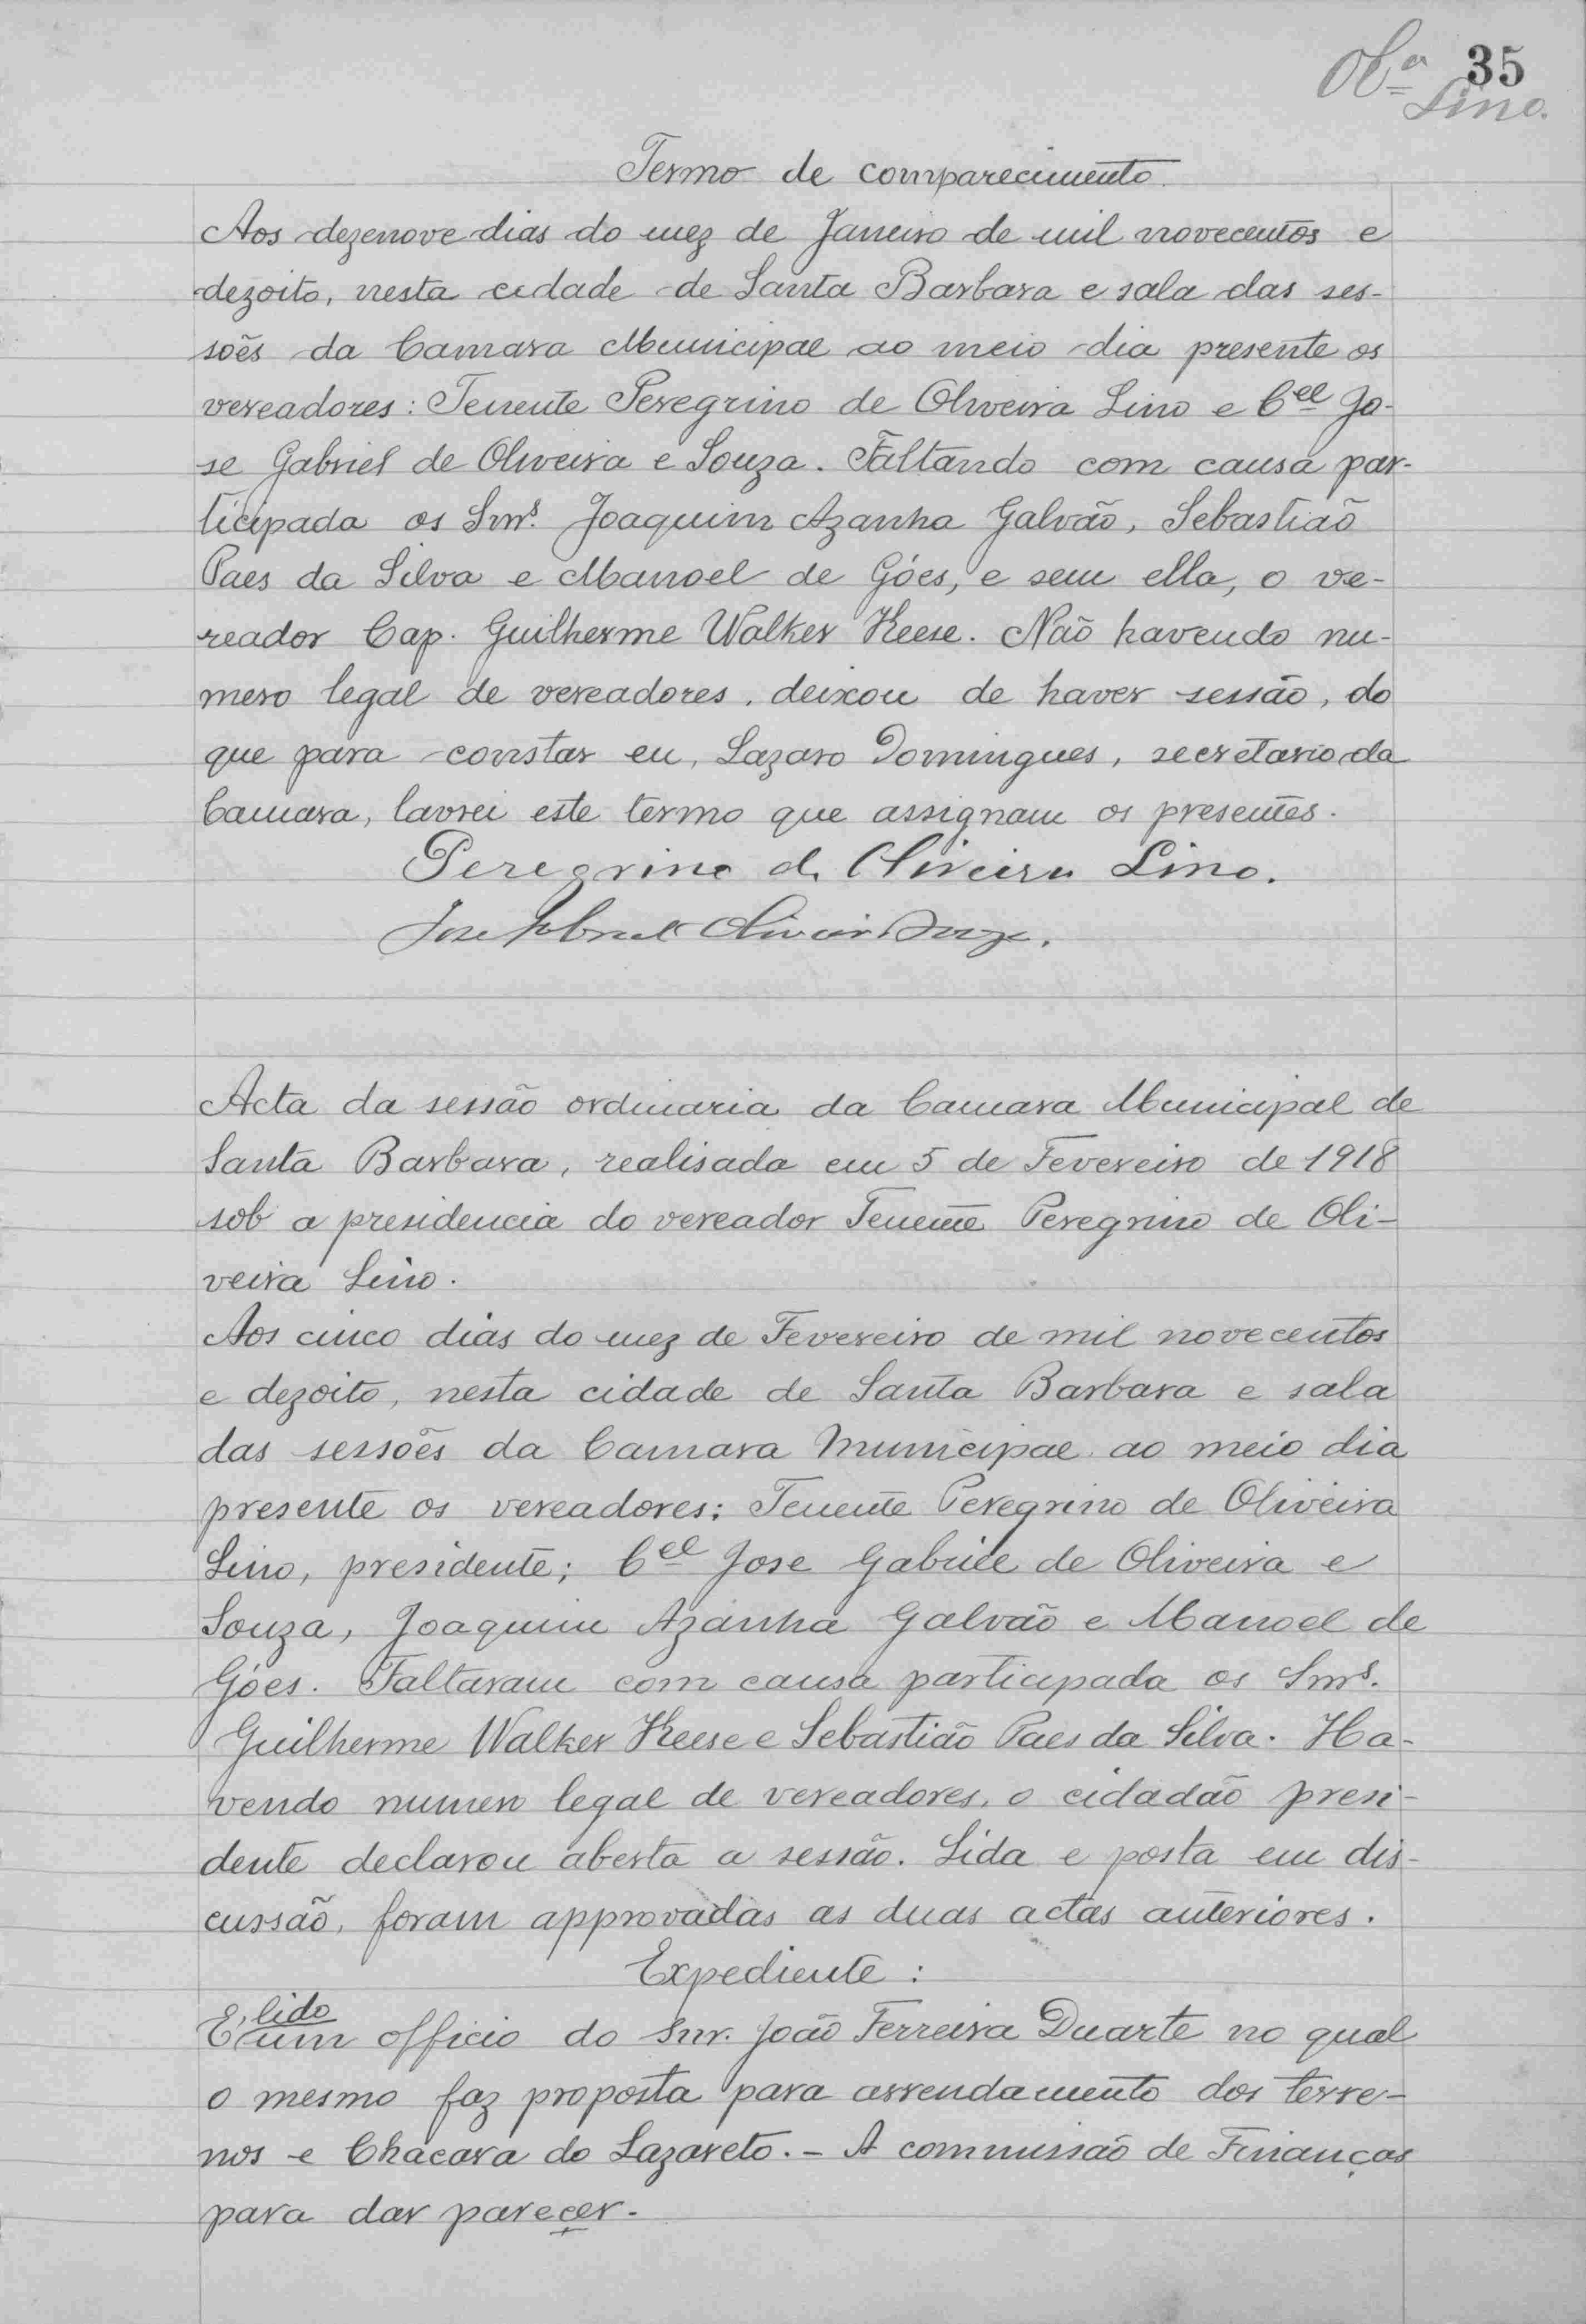 Olª 35
Lino.
Termo de comparecimento
Aos dezenove dias do mez de Janeiro de mil novecentos e
dezoito, nesta cidade de Santa Barbara e sala das ses-
sões da Camara Municipal ao meio dia presente os
vereadores: Tenente Peregrino de Oliveira Lino e Cel Jo-
se Gabriel de Oliveira e Souza. Faltando com causa par-
ticipada os Snrs. Joaquim Azanha Galvão, Sebastião
Paes da Silva e Manoel de Góes, e sem ella, o ve-
reador Cap. Guilherme Walker Keese. Não havendo nu-
mero legal de vereadores, deixou de haver sessão, do
que para constar eu, Lazaro Domingues, secretario da
Camara, lavrei este termo que assignam os presentes.
Peregrino de Oliveira Lino.
Jose Gabriel Oliveira Souza.
Acta da sessão ordinaria da Camara Municipal de
Santa Barbara, realisada em 5 de Fevereiro de 1918
sob a presidencia do vereador Tenente Peregrino de Oli-
veira Lino.
Aos cinco dias do mez de Fevereiro de mil novecentos
e dezoito, nesta cidade de Santa Barbara e sala
das sessões da Camara Municipal ao meio dia
presente os vereadores: Tenente Peregrino de Oliveira
Lino, presidente; Cel Jose Gabriel de Oliveira e
Souza, Joaquim Azanha Galvão e Manoel de
Góes. Faltaram com causa participada os Snrs.
Guilherme Walker Keese e Sebastião Paes da Silva. Ha-
vendo numero legal de vereadores, o cidadão presi-
dente declarou aberta a sessão. Lida e posta em dis-
cussão, foram approvadas as duas actas anteriores.
Expediente:
E' lido um officio do Snr. João Ferreira Duarte no qual
o mesmo faz proposta para arrendamento dos terre-
nos e Chácara do Lazareto. - A commissão de Finanças
para dar parecer.